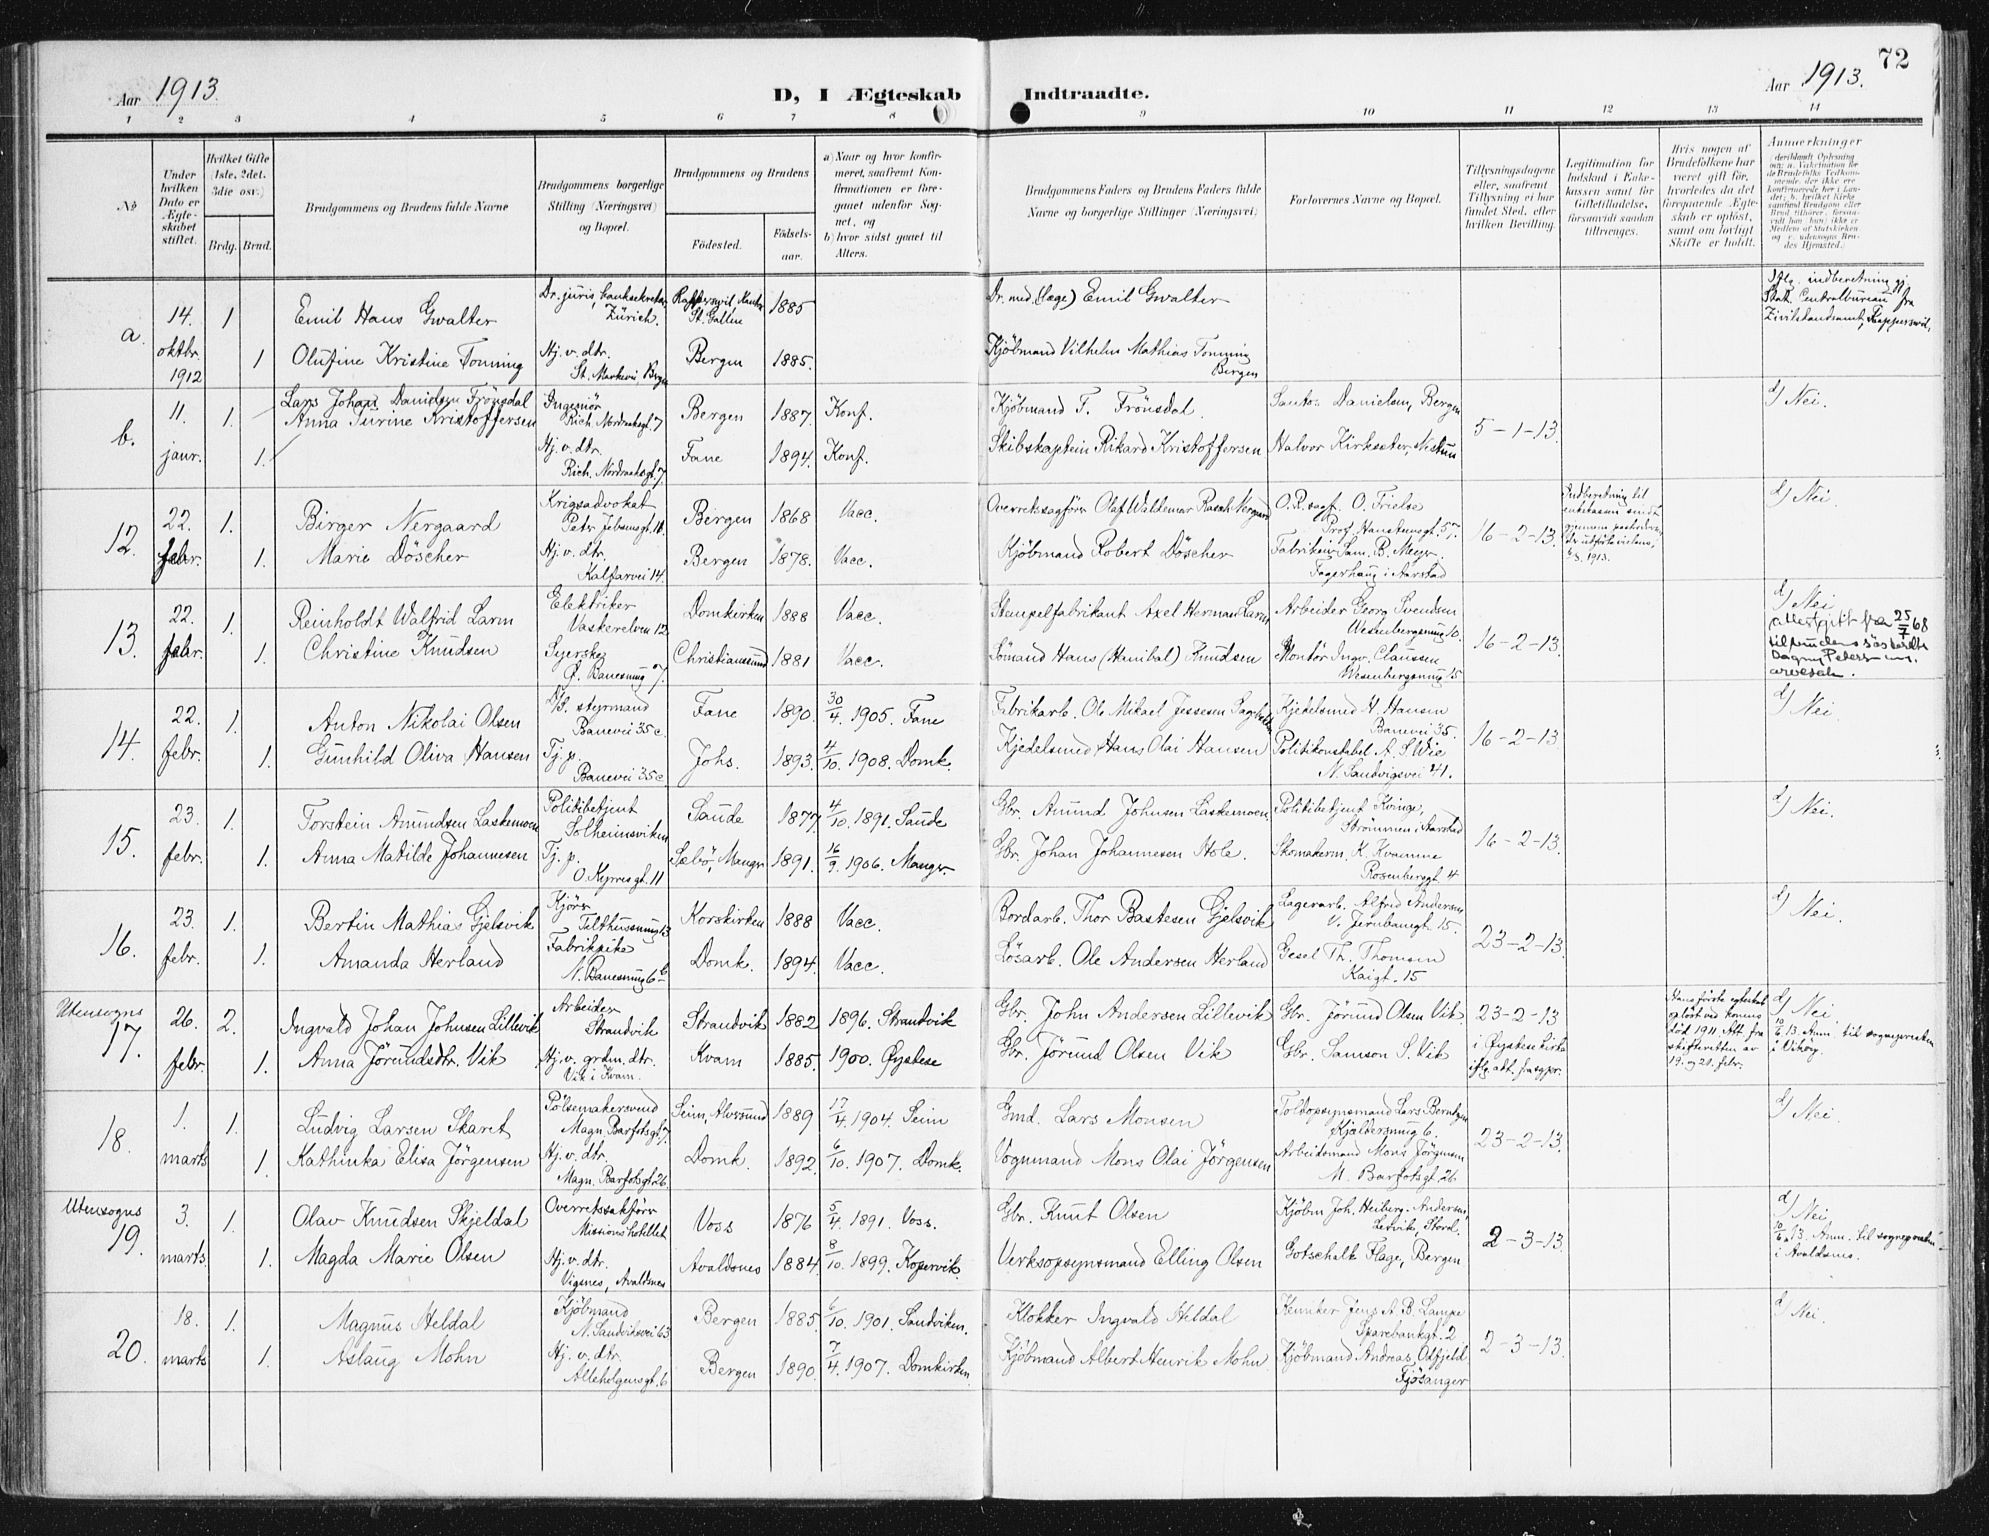 72
Aar 1913.
D, I Ægteskab Indtraadte.
Aar 1913.
1 2 3 4 5 6 7 8 9 10 11 12 13 14
No
Under hvilken Dato er Ægteskabet stiftet.
Hvilket Gifte (1ste, 2det, 3die osv.)
Brdg. Brud.
Brudgommens og Brudens fulde Navne
Brudgommens borgerlige Stilling (Næringsvei) og Bopæl.
Brudgommens og Brudens
Fødested.
Fødselsaar.
a) Naar og hvor konfirmeret, saafremt Konfirmationen er foregaaet udenfor Sognet, og
b) hvor sidst gaaet til Alters.
Brudgommens Faders og Brudens Faders fulde Navne og borgerlige Stillinger (Næringsvei)
Forlovernes Navne og Bopæl.
Tillysningsdagene eller, saafremt Tillysning ei har fundet Sted, efter hvilken Bevilling.
Legitimation for Indskud i Enkekassen samt for Giftetilladelse, forsaavidt saadan tiltrænges.
Hvis nogen af Brudefolkene har været gift før, hvorledes da det foregaaende Ægteskab er opløst, samt om lovligt Skifte er holdt.
Anmerkninger
a. 14. oktbr. 1912
1 Emil Hans Gwalter
Dr. juris, banksekretær, Zürich.
Rapperswil Kanton St. Gallen
1885
Dr. med. (læge) Emil Gwalter
Iflg. indberetning gj. Stat. Centralbureau fra Zivilstandsamt, Rapperswil.
1 Olufine Kristine Tonning
Hj. v. dtr. St. Markevei Bergen
Bergen 1885.
Kjøbmand Vilhelm Mathias Tonning Bergen
b. 11. januar.
1. Lars Johan Danielsen Frönsdal
Ingeniør Rich. Nordraaksgt. 7
Bergen 1887. Konf.
Kjöbmand T. Frönsdal.
Santos Danielsen, Bergen
5-1-13.
d/ Nei.
1. Anna Turine Kristoffersen
Hj. v. dtr. Rich. Nordraaksgt. 7
Fane 1894. Konf.
Skibskaptein Rikard Kristoffersen
Halvor Kirksæter, Nestun
12. 22. febr.
1. Birger Nergaard
Krigsadvokat Peter Jebsensgt. 18.
Bergen 1868 Vacc.
Overretssagförer Olaf Waldemar Rasch Nergaard
O.R.sagf. O. Trielse Prof. Hansteensgt. 57.
16-2-13.
d/ Nei
1. Marie Döscher
Hj. v. dtr. Kalfarvei 14.
Bergen 1878. Vacc.
Kjöbmand Robert Döscher
Fabrikeier Sam. B. Meyer. Fagerhaug i Aarstad
13. 22. febr.
1. Reinholdt Walfrid Larm
Elektriker Vaskerelven 12
Domkirken 1888 Vacc.
Stempelfabrikant Axel Herman Larm
Arbeider Georg Svendsen Wesenbergsmug 10.
16-2-13.
d/ Nei
attest gitt fra 25/7 68 til brudens søsterdtr. Dagny Petersen arvesak.
1. Christine Knudsen
Syerske Ø. Banesmug 7.
Christianssund 1881 Vacc.
Sömand Hans (Hanibal) Knudsen
Montör Ingv. Claussen Wesenbergsmug 15
14. 22. febr.
1. Anton Nikolai Olsen
D/S. styrmand Banevei 35c.
Fane 1890. 30/4. 1905. Fane
Fabrikarb. Ole Mikael Jessesen
Kjedelsmed H. Hansen Banevei 35.
16-2-13.
d/ Nei
1. Gunhild Oliva Hansen
Tj. p. Banevei 35c
Johs. 1893. 4/10. 1908. Domk.
Kjedelsmed Hans Olai Hansen
Politikonstabel A. S. Wie N. Sandvigsvei 41.
15. 23. febr.
1. Torstein Amundsen Laskemoen
Politibetjent Solheimsviken
Saude 1877 4/10. 1891. Saude
Gbr. Amund Johnsen Laskemoen
Politibetjent Kvinge, Strömmen i Aarstad
16-2-13.
d/ Nei.
1. Anna Matilde Johannesen
Tj. p. O. Kyrresgt. 11
Sæbö, Manger 1891. 16/9. 1906. Manger.
Gbr. Johan Johannesen Hole.
Skomakerm. K. Kvamme Rosenberggt. 4
16. 23. febr.
1. Bertin Mathias Gjelsvik
Kjörer Telthussmug 13
Korskirken 1888 Vacc.
Bordarb. Thor Bastesen Gjelsvik
Lagerarb. Alfred Andersen V. Jernbanegt. 15.
23-2-13.
d/ Nei.
1. Amanda Herland
Fabrikpike N. Banesmug 6b
Domk. 1894. Vacc.
Lösarb. Ole Andersen Herland
Gesel Th. Thomsen Kaigt. 15
Utensogns
17. 26. febr.
2. Ingvald Johan Johnsen Lillevik
Arbeider Strandvik
Strandvik 1882 1896. Strandvik
Gbr. John Andersen Lillevik
Gbr. Jörund Olsen Vik.
23-2-13 i Øystese Kirke iflg. att. fra sgpr.
Hans første egteskab oplöst ved konens död 1911. Att. fra skifteretten av 19. og 21. febr.
d/ Nei. 10/6 13. Anm. til sognepresten i Vikör.
1. Anna Jörundsdtr. Vik
Hj. v. grdm. dtr. Vik i Kvam.
Kvam 1885. 1900. Øystese
Gbr. Jörund Olsen Vik
Gbr. Samson S. Vik
18. 1. marts
1. Ludvig Larsen Skaret
Pölsemakersvend Magn. Barfotsgt. 7.
Seim, Alversund 1889 17/4 1904. Seim
Gmd. Lars Monsen
Toldopsynsmand Lars Berntzen Kjeldersmug 6.
23-2-13.
d/ Nei.
1. Kathinka Elisa Jörgensen
Hj. v. dtr. Magn. Barfotsgt. 26.
Domk. 1892. 6/10. 1907. Domk.
Vognmand Mons Olai Jörgensen
Arbeidsmand Mons Jörgensen M. Barfotsgt. 26
Utensogns
19. 3. marts.
1. Olav Knudsen Skjeldal
Overretssakförer Missionshotellet
Voss 1876 5/4. 1891. Voss.
Gbr. Knut Olsen
Kjöbm. Joh. Heiberg-Andersen, Lervik, Stord.
2-3-13.
d/ Nei 10/6 13. Anm. til sognepresten i Avaldsnes.
1. Magda Marie Olsen
Hj. v. dtr. Vigsnes, Avaldsnes
Avaldsnes 1884. 8/10. 1899. Kopervik.
Verksopsynsmand Elling Olsen
Gotschalk Flage, Bergen
20. 18. marts
1. Magnus Heldal
Kjöbmand N. Sandviksvei 63
Bergen 1885. 6/10. 1901. Sandviken.
Klokker Ingvald Heldal
Kemiker Jens A. B. Lampe Sparebankgt. 2
2-3-13.
d/ Nei.
1. Aslaug Mohn
Hj. v. dtr. Allehelgensgt. 6
Bergen 1890. 7/4. 1907. Domkirken.
Kjöbmand Albert Henrik Mohn
Kjöbmand Andreas Odfjeld Fjösanger